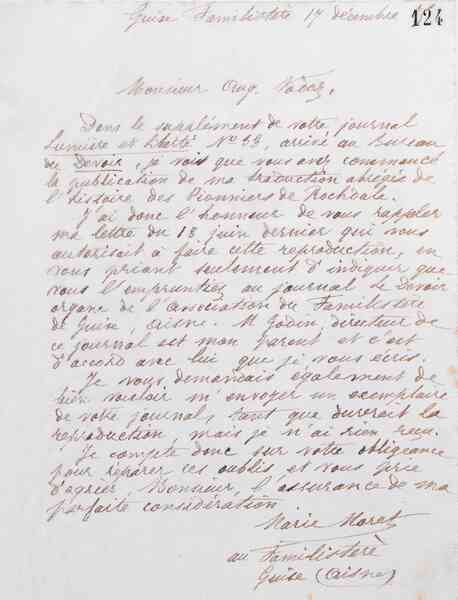 Guise Familistère 17 décembre
124
Monsieur Aug.
Dans le supplément de votre journal
Lumière et Liberté No 33, arrivé au Bureau
du Devoir, je vois que vous avez commencé
la publication de ma traduction abrégée de
l'histoire des Pionniers de Rochdale.
J'ai donc l'honneur de vous rappeler
ma lettre du 13 juin dernier qui vous
autorisait à faire cette reproduction, en
vous priant seulement d'indiquer que
vous l'empruntiez au journal Le Devoir
organe de l'Association du Familistère
de Guise, Aisne. M Godin, directeur de
ce journal est mon parent et c'est
d'accord avec lui que je vous écris.
Je vous demandais également de
bien vouloir m'envoyer un exemplaire
de votre journal, tant que durerait la
reproduction mais je n'ai rien reçu.
Je compte donc sur votre obligeance
pour réparer ces oublis et vous prie
d'agréer, Monsieur, l'assurance de ma
parfaite considération
Marie Moret
au Familistère
Guise (Aisne)